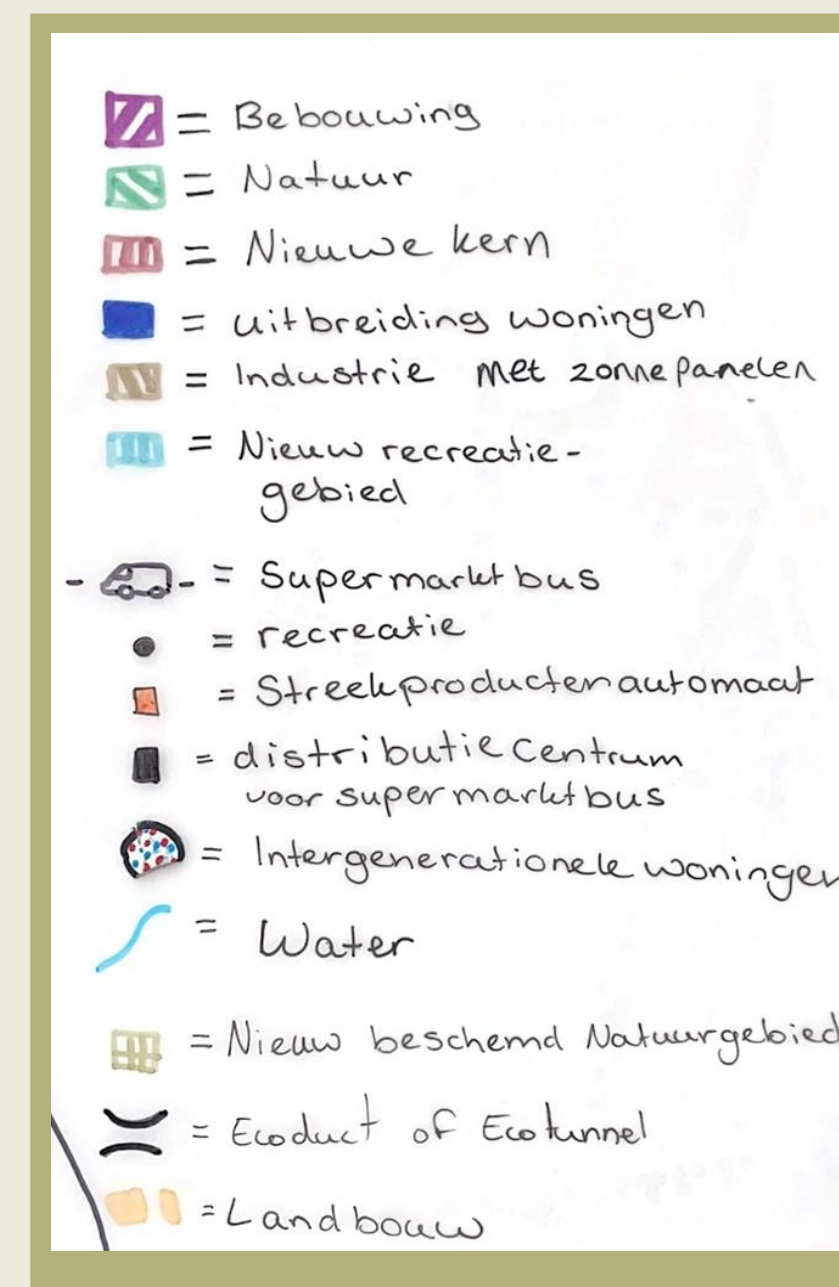 = Bebouwing
= Natuur
= Nieuwe kern
= uitbreiding woningen
= Industrie met zonnepanelen
= Nieuw recreatie-
gebied
= Supermarkt bus
= recreatie
= Streekproductenautomaat
= distributiecentrum
voor supermarktbus
= Intergenerationele woningen
= Water
= Nieuw beschemd Natuurgebied
= Ecoduct of Ecotunnel
= Landbouw